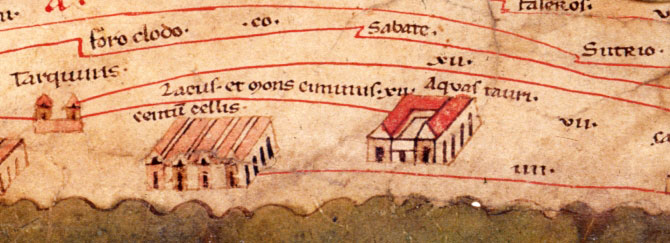 foro clodo · co · Sabate · Sutrio ·
Tarquinis · XII ·
Lacus · et Mons ciminus · XII · Aquas tauri ·
centū cellis · VII ·
IIII ·